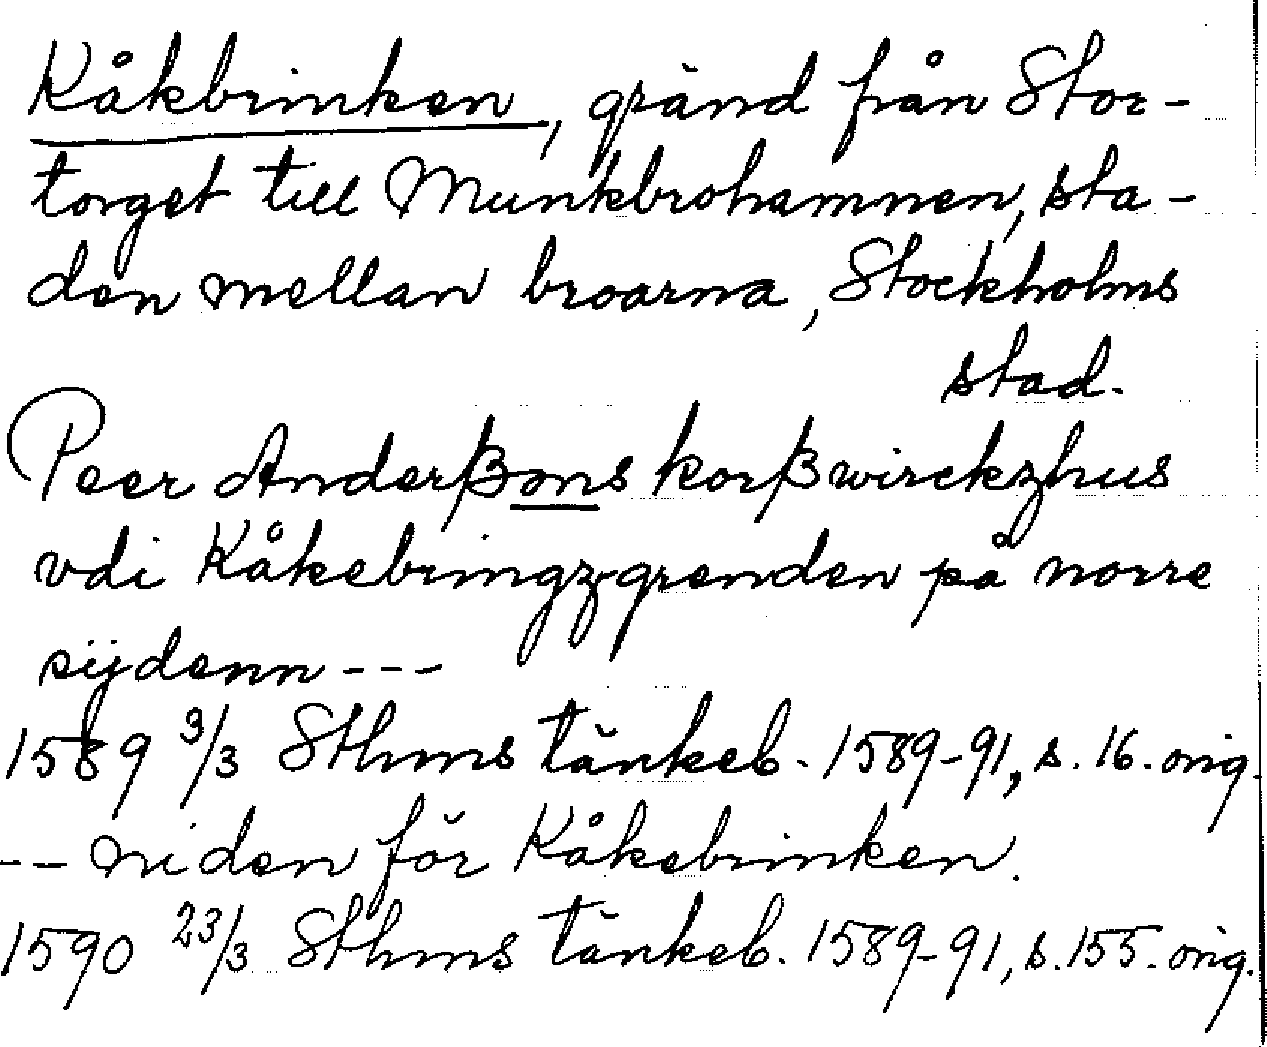 Kåkbrinken, gränd från Stor-
torget till Munkbrohamnen, sta-
den mellan broarna, Stockholms
stad.
Peer Anderßons korßwirckzhus
vdi Kåkebringzgrenden på norre
sijdenn ---
1589 3/3 Sthms tänkeb. 1589-91, s. 16. orig.
-- niden för Kåkebrinken.
1590 23/3 Sthms tänkeb. 1589-91, s. 155. orig.